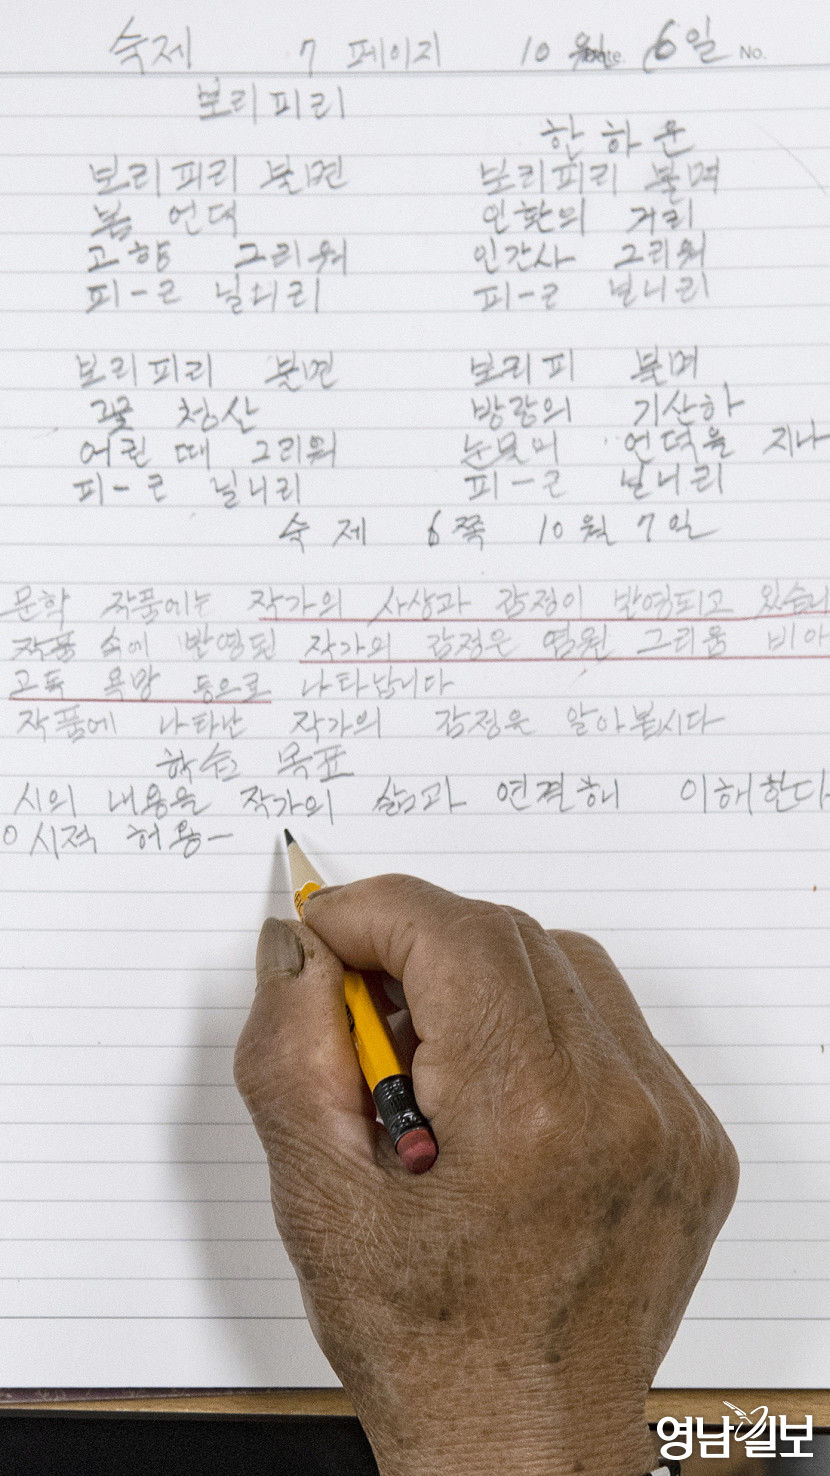 숙제 7 페이지 10 월 6일
Date. No.
보리피리
한 하 운
보리 피리 불면
봄 언덕
고향 그리워
피-ㄹ 닐니리
보리 피리 불며
인환의 거리
인간사 그리워
피-ㄹ 닐니리
보리 피리 불면
꽃 청산
어린 때 그리워
피-ㄹ 닐니리
보리 피 불며
방랑의 기산하
눈물의 언덕을 지나
피-ㄹ 닐니리
숙 제 6쪽 10월 7일
문학 작품에는 작가의 사상과 감정이 반영되고 있습니
작품 속에 반영된 작가의 감정은 염원 그리움 비아
고독 욕망 등으로 나타납니다
작품에 나타난 작가의 감정을 알아봅시다
학습 목표
시의 내용을 작가의 삶과 연결해 이해한다
0 시적 허용-
영남일보